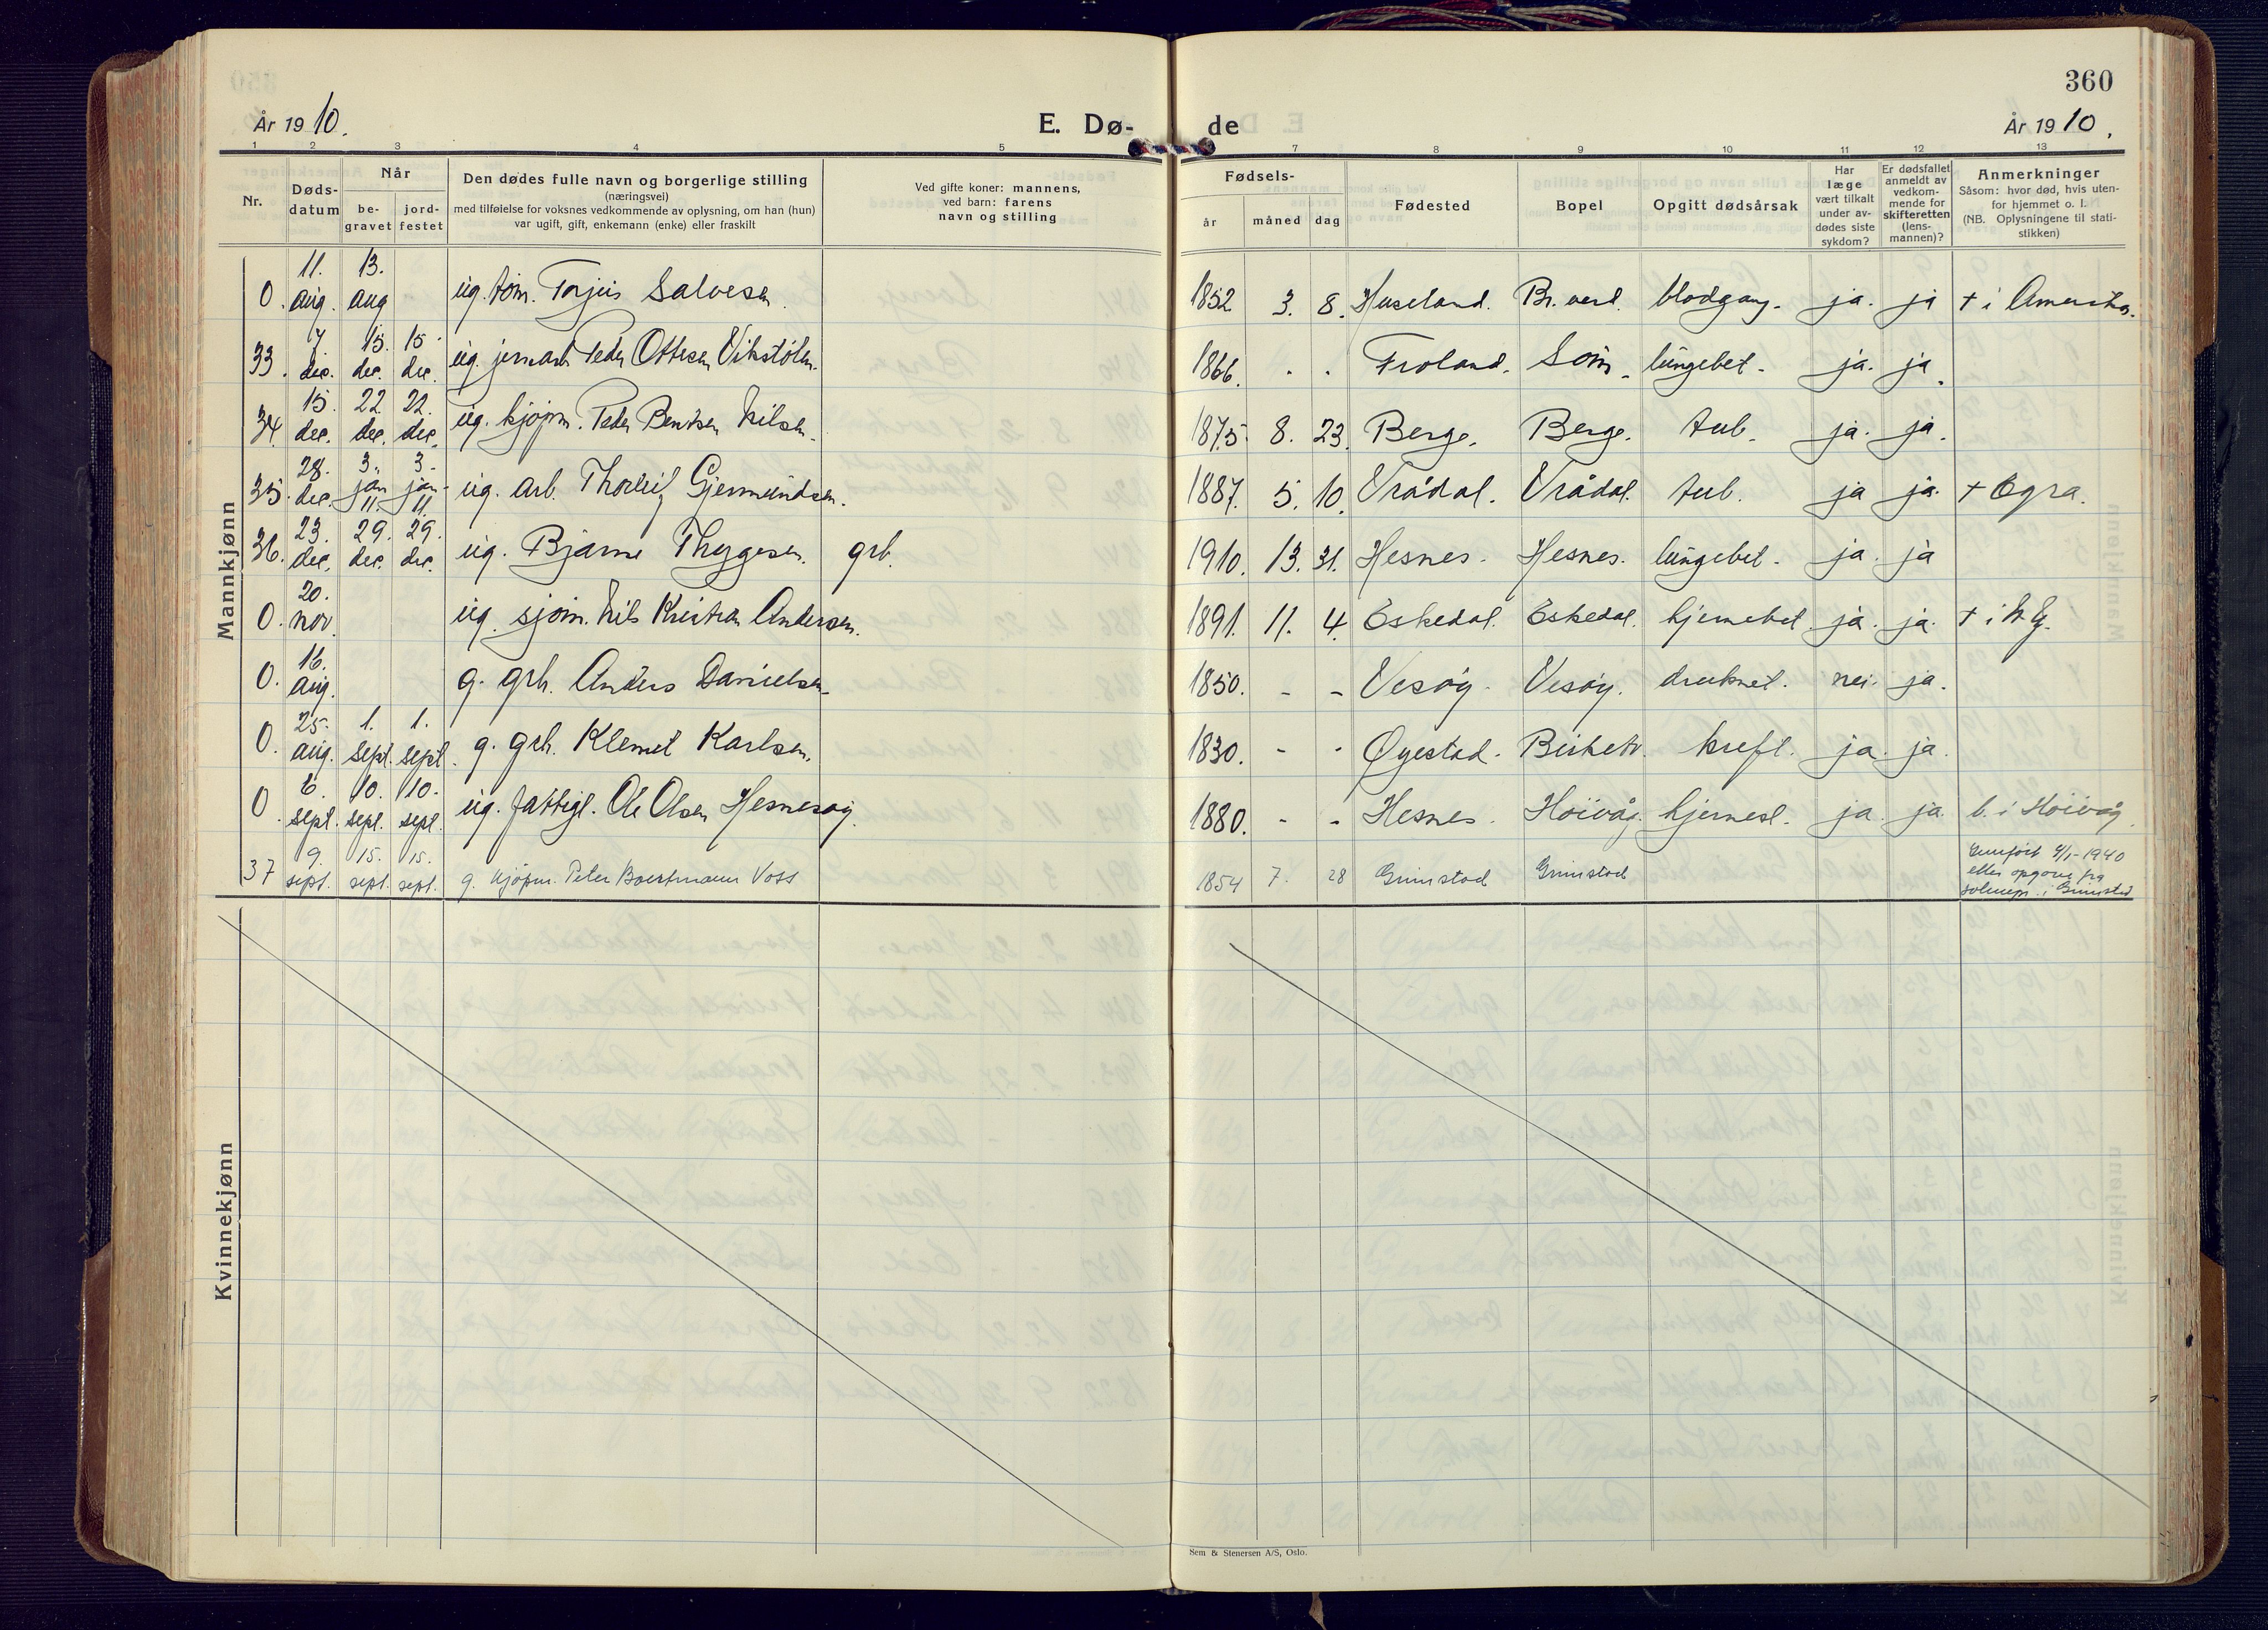 360
År 1910.
E. Dø-
de
År 1910.
1 2 3 4 5 7 8 9 10 11 12 13
Nr.
Døds-
datum
Når
be-
gravet
jord-
festet
Den dødes fulle navn og borgerlige stilling
(næringsvei)
med tilføielse for voksnes vedkommende av oplysning, om han (hun)
var ugift, gift, enkemann (enke) eller fraskilt
Ved gifte koner: mannens,
ved barn: farens
navn og stilling
Fødsels-
år måned dag
Fødested
Bopel
Opgitt dødsårsak
Har
læge
vært tilkalt
under av-
dødes siste
sykdom?
Er dødsfallet
anmeldt av
vedkom-
mende for
skifteretten
(lens-
mannen)?
Anmerkninger
Såsom: hvor død, hvis uten-
for hjemmet o. l.
(NB. Oplysningene til stati-
stikken)
Mannkjønn
0. 11. aug. 13. aug ug. tøm. Torjus Salvesen. 1852 3. 8. Huseland. Br. verd. blodgang. ja. ja + i Amerika.
33. 7 dec. 15. dec. 15. dec. ug. jernarb. Peder Ottesen Vikstølen. 1866. - - Froland. Søm. lungebet. ja. ja.
34. 15. dec. 22 dec. 22. dec. ug. kjøpm. Peder Bentsen Nilsen. 1875 8. 23. Berge. Berge. tub. ja. ja.
35. 28. dec. 3. jan 11. 3. jan 11. ug. arb. Thorleif Gjermundsen. 1887. 5. 10. Vrådal. Vrådal. tub. ja ja. + Ogra.
36. 23. dec. 29. dec. 29. dec. ug. Bjarne Thygesen. grb. 1910. 13. 31. Hesnes. Hesnes. lungebet. ja. ja
0. 20. nov. ug. sjøm. Nils Kristian Andersen. 1891. 11. 4. Eskedal. Eskedal. hjernebet. ja. ja.
0. 16. aug. g. grb. Anders Danielsen. 1850. - - Vesøy. Vesøy. druknet. nei. ja.
0. 25. aug. 1. sept. 1. sept. g. grb. Klemet Karlsen. 1830. - - Øyestad. Birketv. kreft. ja. ja.
0. 6. sept. 10. sept. 10. sept. ug. fattigl. Ole Olsen Hesnesøy. 1880. - - Hesnes. Høivåg. hjernesl. ja. ja. b. i Høivåg.
37 9. sept. 15. sept. 15. sept. g. kjøpm. Peter Boerfmann Voss 1854 7. 28 Grimstad Grimstad
1940
efter opgave fra
i Grimstad
Kvinnekjønn
Sem & Stenersen A/S, Oslo.